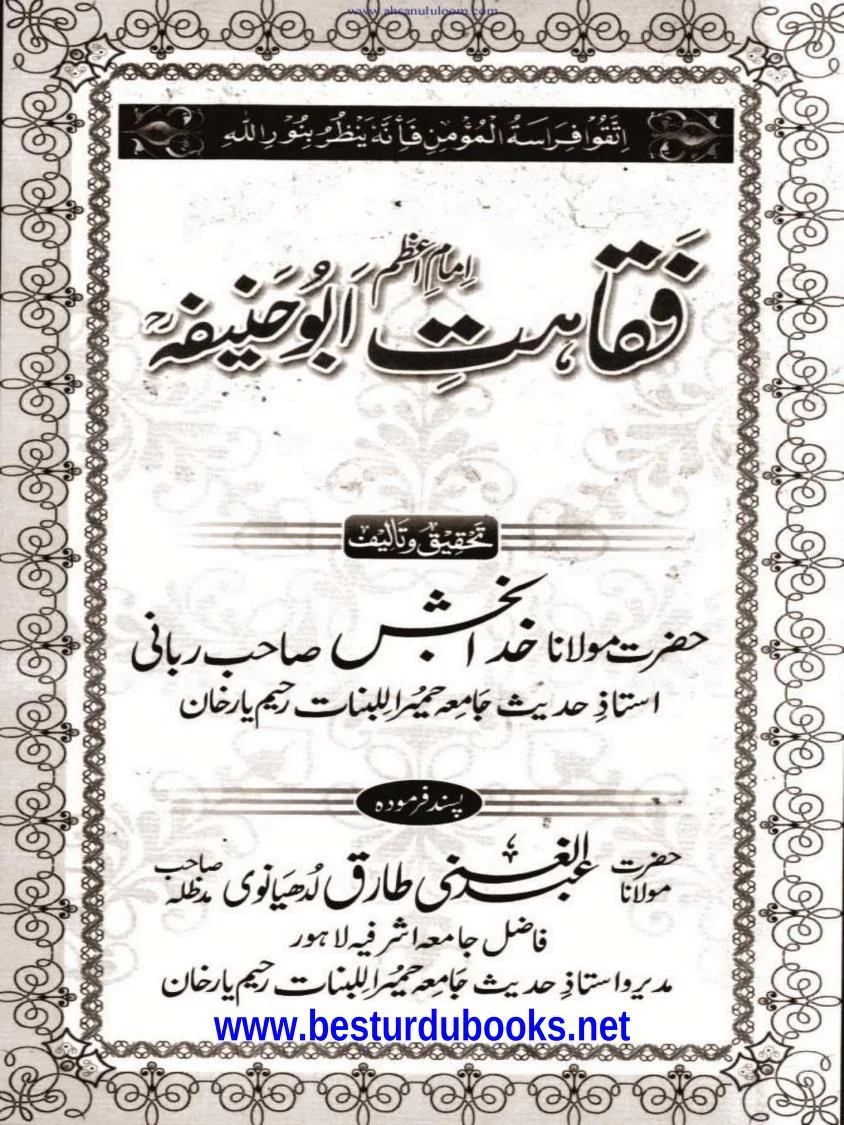 www.ahsanululoom.com
اِتَّقُوا فِرَاسَةُ الْمُؤْمِنِ فَاِنَّهٗ یَنْظُرُ بِنُوْرِ اللهِ
فَقاہتِ امامِ اعظم اَبُوحَنِیفہؒ
تَحقِیق وتَالِیف
حضرت مولانا خدابخش صاحب ربانی
استاذِ حدیث جَامِعہ حمیرا للبنات رحیم یار خان
پسند فرمودہ
حضرت مولانا عبدالغنی طارق لُدھیانوی صاحب مدظلہ
فاضل جامعہ اشرفیہ لاہور
مدیر و استاذِ حدیث جَامِعہ حمیرا للبنات رحیم یار خان
www.besturdubooks.net